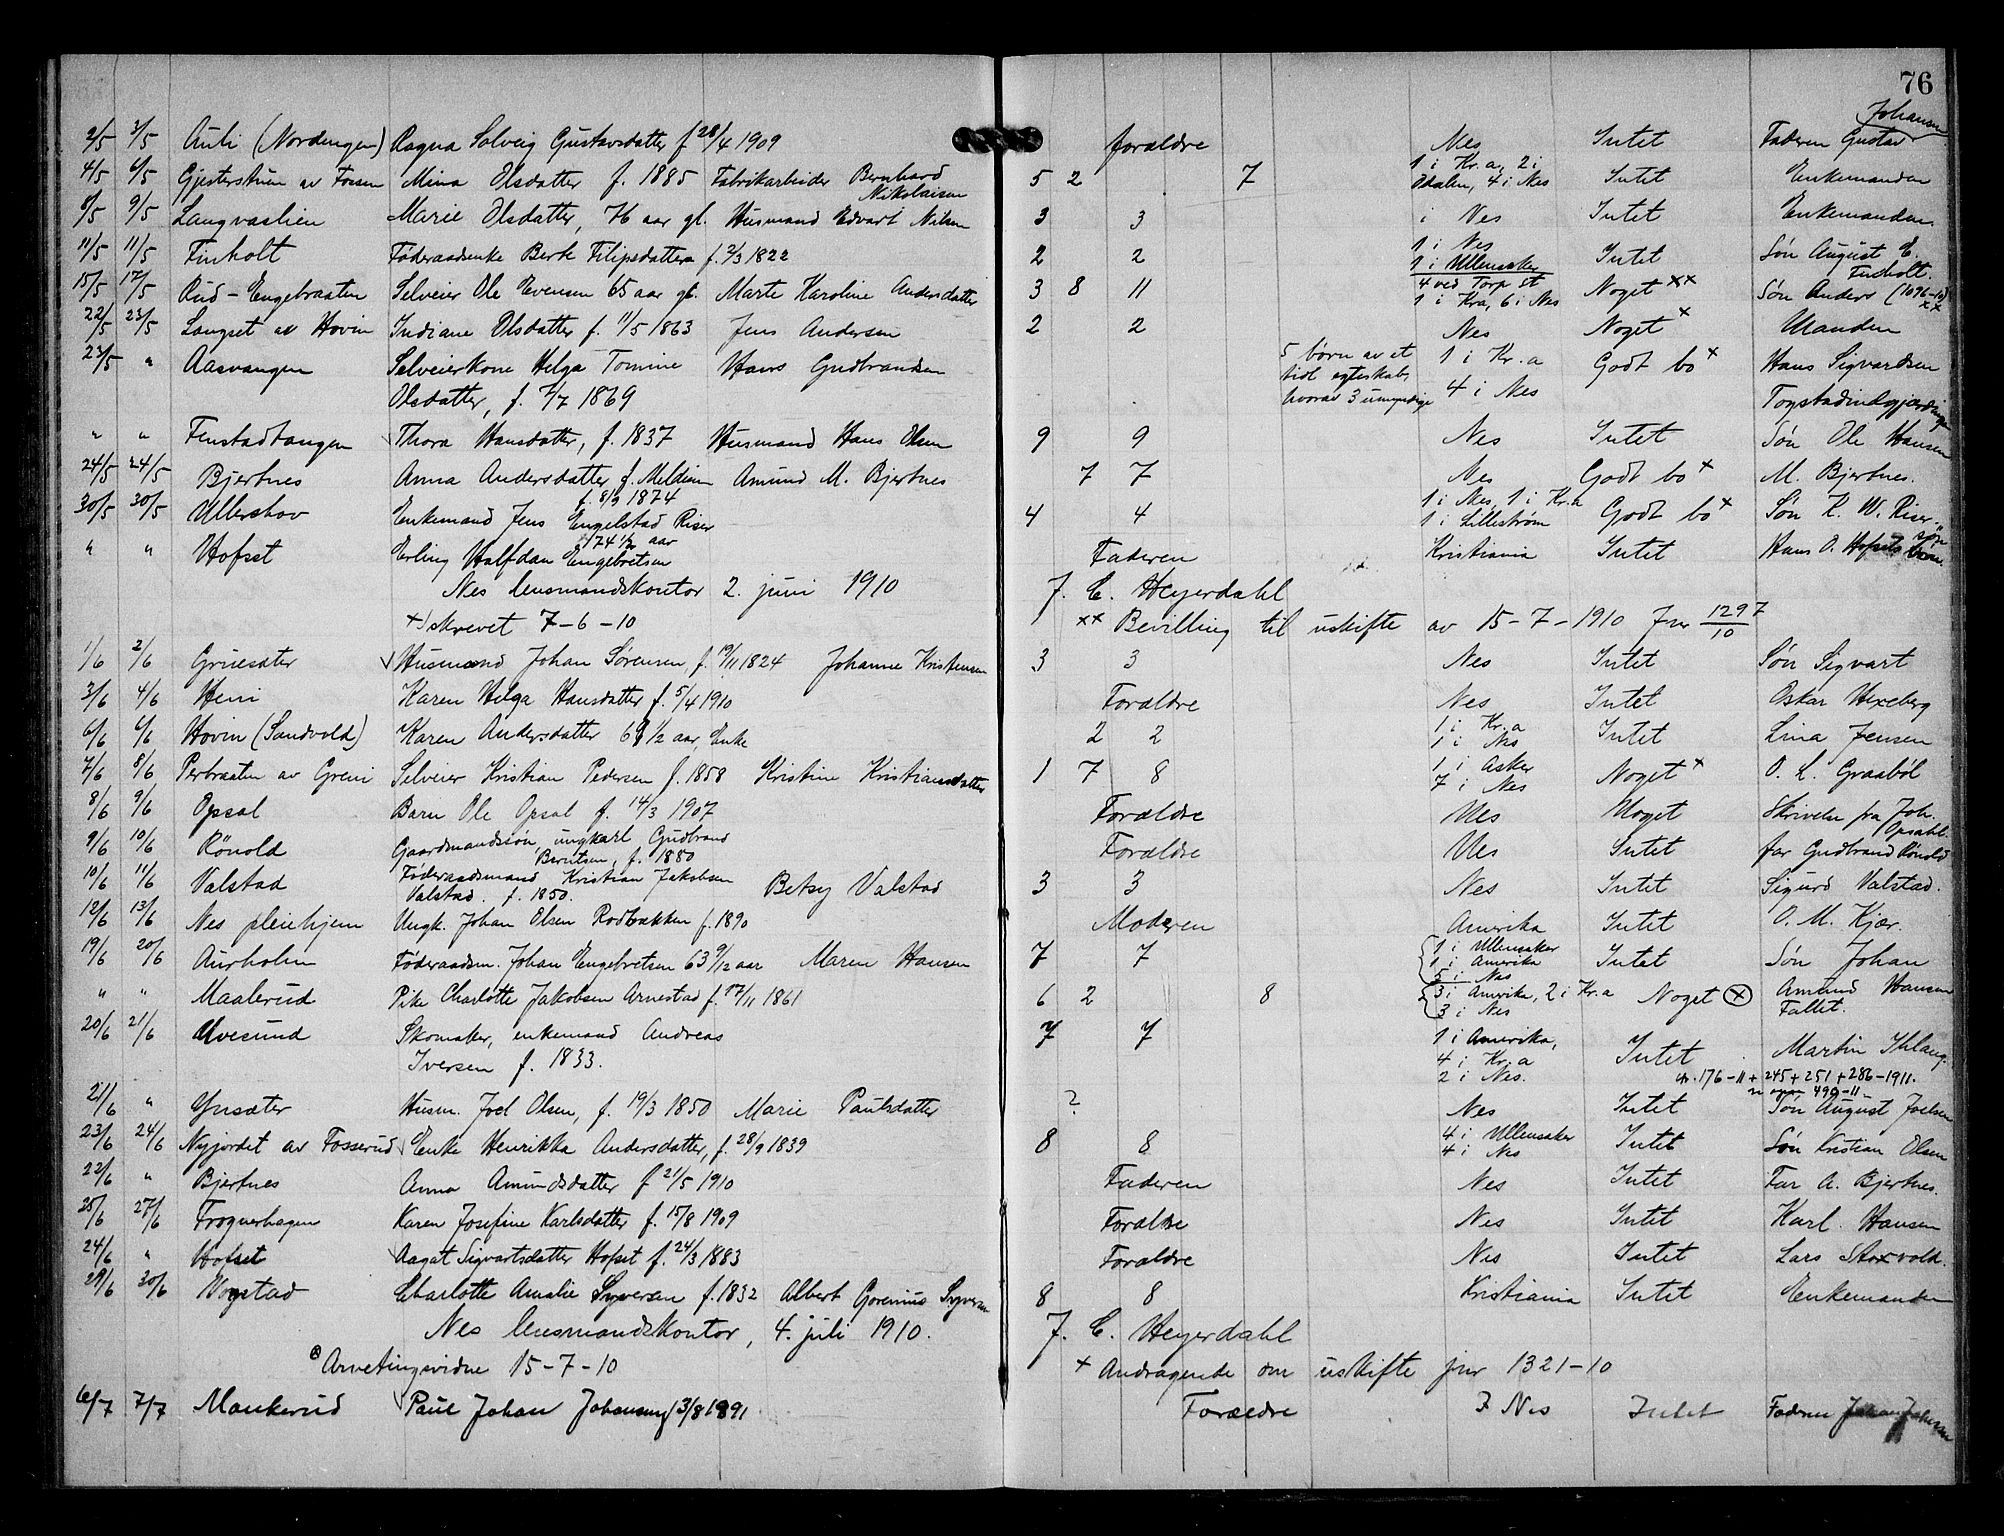 76
2/5 3/5 Auli (Nordengen) Ragna Solveig Gustavsdatter f 28/4 1909 forældre Nes Intet Faderen Gustav Johansen
4/5 6/5 Gjesterstuen av Fossen Mina Olsdatter f. 1885 Fabrikarbeider Bernhard Nikolaisen 5 2 7 1 i Kr.a, 2 i Odalen, 4 i Nes Intet Enkemanden
8/5 9/5 Langvaslien Marie Olsdatter, 76 aar gl. Husmand Edvart Nilsen 3 3 i Nes Intet Enkemanden
11/5 11/5 Finholt Føderaadsenke Berte Filipsdatter f. 2/3 1822 2 2 1 i Nes 1 i Ullensaker Intet Søn August E. Finholt.
15/5 17/5 Rud-Engebraaten Selveier Ole Evensen 65 aar gl. Marte Karoline Andersdatter 3 8 11 4 ved Torp st 1 i Kra, 6 i Nes Noget xx Søn Anders (1096-10) xx
22/5 23/5 Langset av Hovin Indiane Olsdatter f. 11/5 1863 Jens Andersen 2 2 Nes Noget x Manden
23/5 " Aasvangen Selveierkone Helga Tomine Hans Gudbrandsen 5 børn av et 1 i Kr.a Godt bo x Hans Sigvardsen
Olsdatter, f. 2/7 1869 tidl egteskab, hvorav 3 umyndige 4 i Nes Togstadindgjærdingen
" " Fenstadtangen Thora Hansdatter, f. 1837 Husmand Hans Olsen 9 9 Nes Intet Søn Ole Hansen
24/5 24/5 Bjertnes Anna Andersdatter f. Meldium f. 8/9 1874 Amund M. Bjertnes 7 7 Nes Godt bo x M. Bjertnes.
30/5 30/5 Ullershov Enkemand Jens Engelstad Riser 74 1/2 aar 4 4 1 i Nes, 1 i Kr.a 1 i Lillestrøm Godt bo x Søn K. W. Riser
" " Hofset Erling Halfdan Engebretsen Faderen Kristiania Intet Hans O. Hofset
Nes lensmandskontor 2. juni 1910 J. C. Heyerdahl
x) skrevet 7-6-10 xx Bevilling til uskifte av 15-7-1910 Jnr 1297/10
1/6 2/6 Gruesæter Husmand Johan Sørensen, f. 19/11 1824 Johanne Kristensen 3 3 Nes Intet Søn Sigvart
3/6 4/6 Heni Karen Helga Hansdatter f. 5/4 1910 Forældre Nes Intet Oskar Hexeberg
6/6 6/6 Hovin (Sandvold) Karen Andersdatter 69 1/2 aar, Enke 2 2 1 i Kr.a 1 i Nes Intet Lina Jensen
7/6 8/6 Perbraaten av Greni Selveier Kristian Pedersen f. 1858 Kristine Kristiansdatter 1 7 8 1 i Asker 7 i Nes Noget x O. L. Graabøl
8/6 9/6 Opsal Barn Ole Opsal f. 14/3 1907 Forældre Nes Noget Skrivelse fra Joh. Opsahl
9/6 10/6 Rönold Gaardmandssøn, ungkarl Gudbrand Berntsen, f. 1880 Forældre Nes Intet far Gudbrand Rönold
10/6 11/6 Valstad Føderaadsmand Kristian Jakobsen Valstad. f. 1850. Betsy Valstad 3 3 Nes Intet Sigurd Valstad.
12/6 13/6 Nes pleiehjem Ungk. Johan Olsen Rodbakken f. 1890 Moderen Amerika Intet O. M. Kjær.
19/6 20/6 Aurholm Føderaadsm. Johan Engebretsen 63 9/12 aar Maren Hansen 7 7 1 i Ullensaker 1 i Amerika 5 i Nes Intet Søn Johan
" " Maalerud Pike Charlotte Jakobsen Arnestad f. 17/11 1861 6 2 8 3 i Amerika, 2 i Kr.a 3 i Nes Noget (x) Amund Hansen Fallet.
20/6 21/6 Uvesund Skomaker, enkemand Andreas 7 7 1 i Amerika,
Iversen f. 1833. 4 i Kr.a 2 i Nes. Intet Martin
nr. 176-11 + 245 + 251 + 286-1911.
490-11-
21/6 " Ynsæter Husm. Joel Olsen, f. 19/3 1850 Marie Paulsdatter ? Nes Intet Søn August Joelsen
23/6 24/6 Nyjordet av Fosserud Enke Henrikka Andersdatter, f. 28/9 1839 8 8 4 i Ullensaker 4 i Nes Intet Søn Kristian Olsen
22/6 " Bjertnes Anna Amundsdatter f 21/5 1910 Faderen Nes Intet Far A. Bjertnes.
25/6 27/6 Frognerhagen Karen Josefine Karlsdatter f. 15/8 1909 Forældre Nes Intet Karl Hansen
24/6 " Hofset Aagot Sigvartsdatter Hofset f. 24/3 1883 Forældre Nes Intet Lars Storvold.
29/6 30/6 Vogstad Charlotte Amalie Syversen f. 1832 Albert Gorenius Syversen 8 8 Kristiania Intet Enkemanden
Nes lensmandskontor, 4. juli 1910. J. C. Heyerdahl
(x) Arvetingsvidne 15-7-10 x Andragende om uskifte jnr 1321-10
6/7 7/7 Mankerud Paul Johan Johansen f 3/8 1891 Forældre I Nes Intet Faderen Johan Johansen